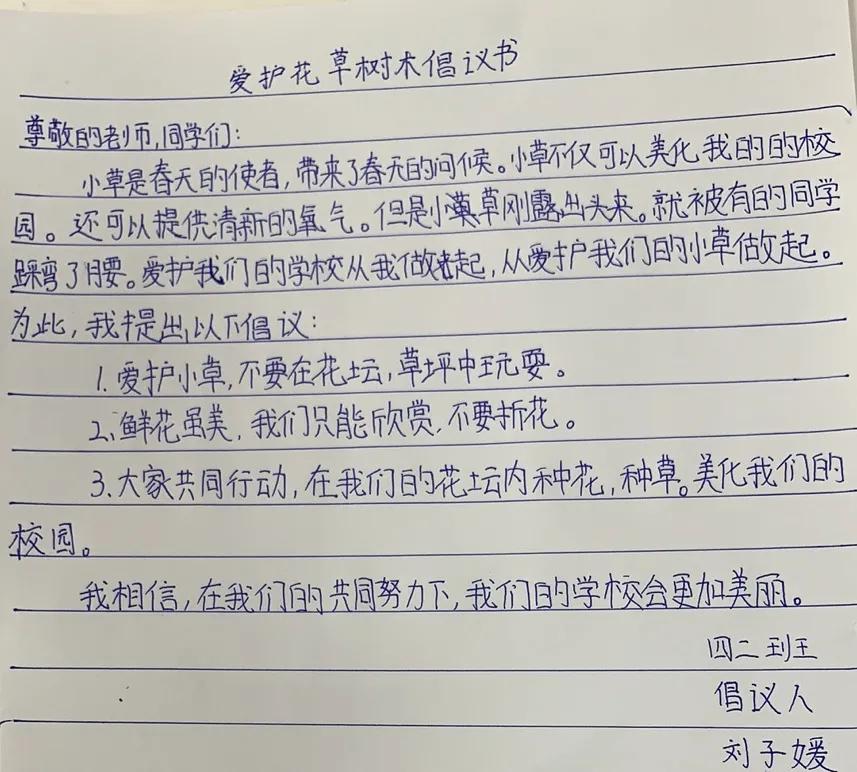 爱护花草树木倡议书
尊敬的老师,同学们:
小草是春天的使者,带来了春天的问候。小草不仅可以美化我的的校
园。还可以提供清新的氧气。但是小草刚露出头来。就被有的同学
踩弯了腰。爱护我们的学校从我做起,从爱护我们的小草做起。
为此,我提出以下倡议:
1.爱护小草,不要在花坛,草坪中玩耍。
2.鲜花虽美,我们只能欣赏,不要折花。
3.大家共同行动,在我们的花坛内种花,种草。美化我们的
校园。
我相信,在我们的共同努力下,我们的学校会更加美丽。
四二班
倡议人
刘子媛